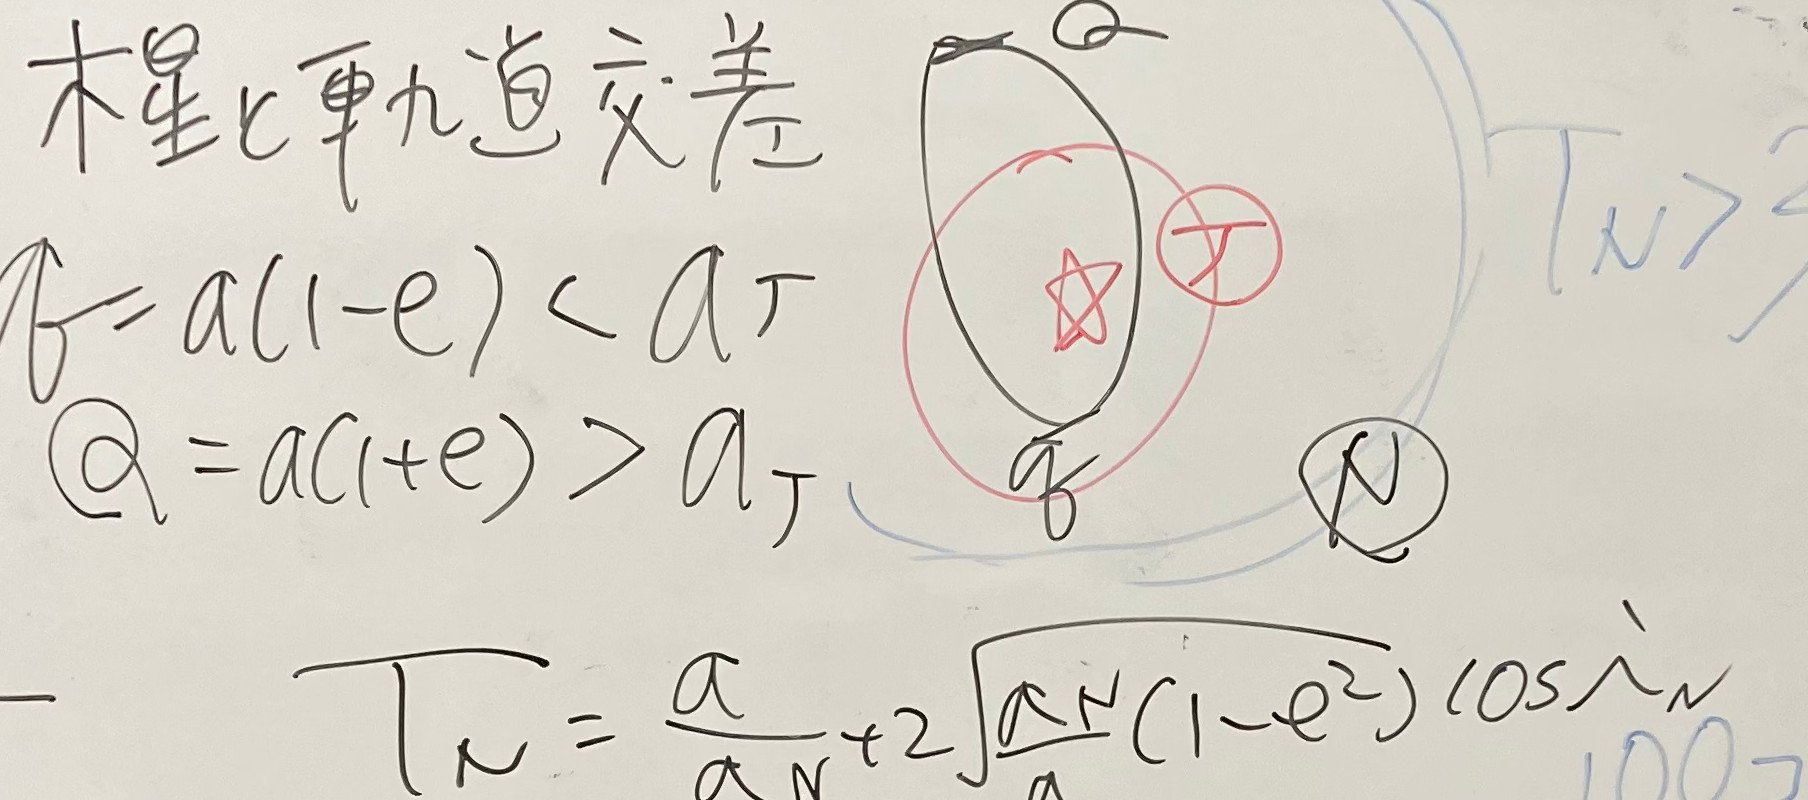 木星と軌道交差
Q
q = a(1-e) < a_J
J
T_N > 3
Q = a(1+e) > a_J
q
N
T_N = a/a_N + 2√(a_N/a (1-e²)) cos i_N
100